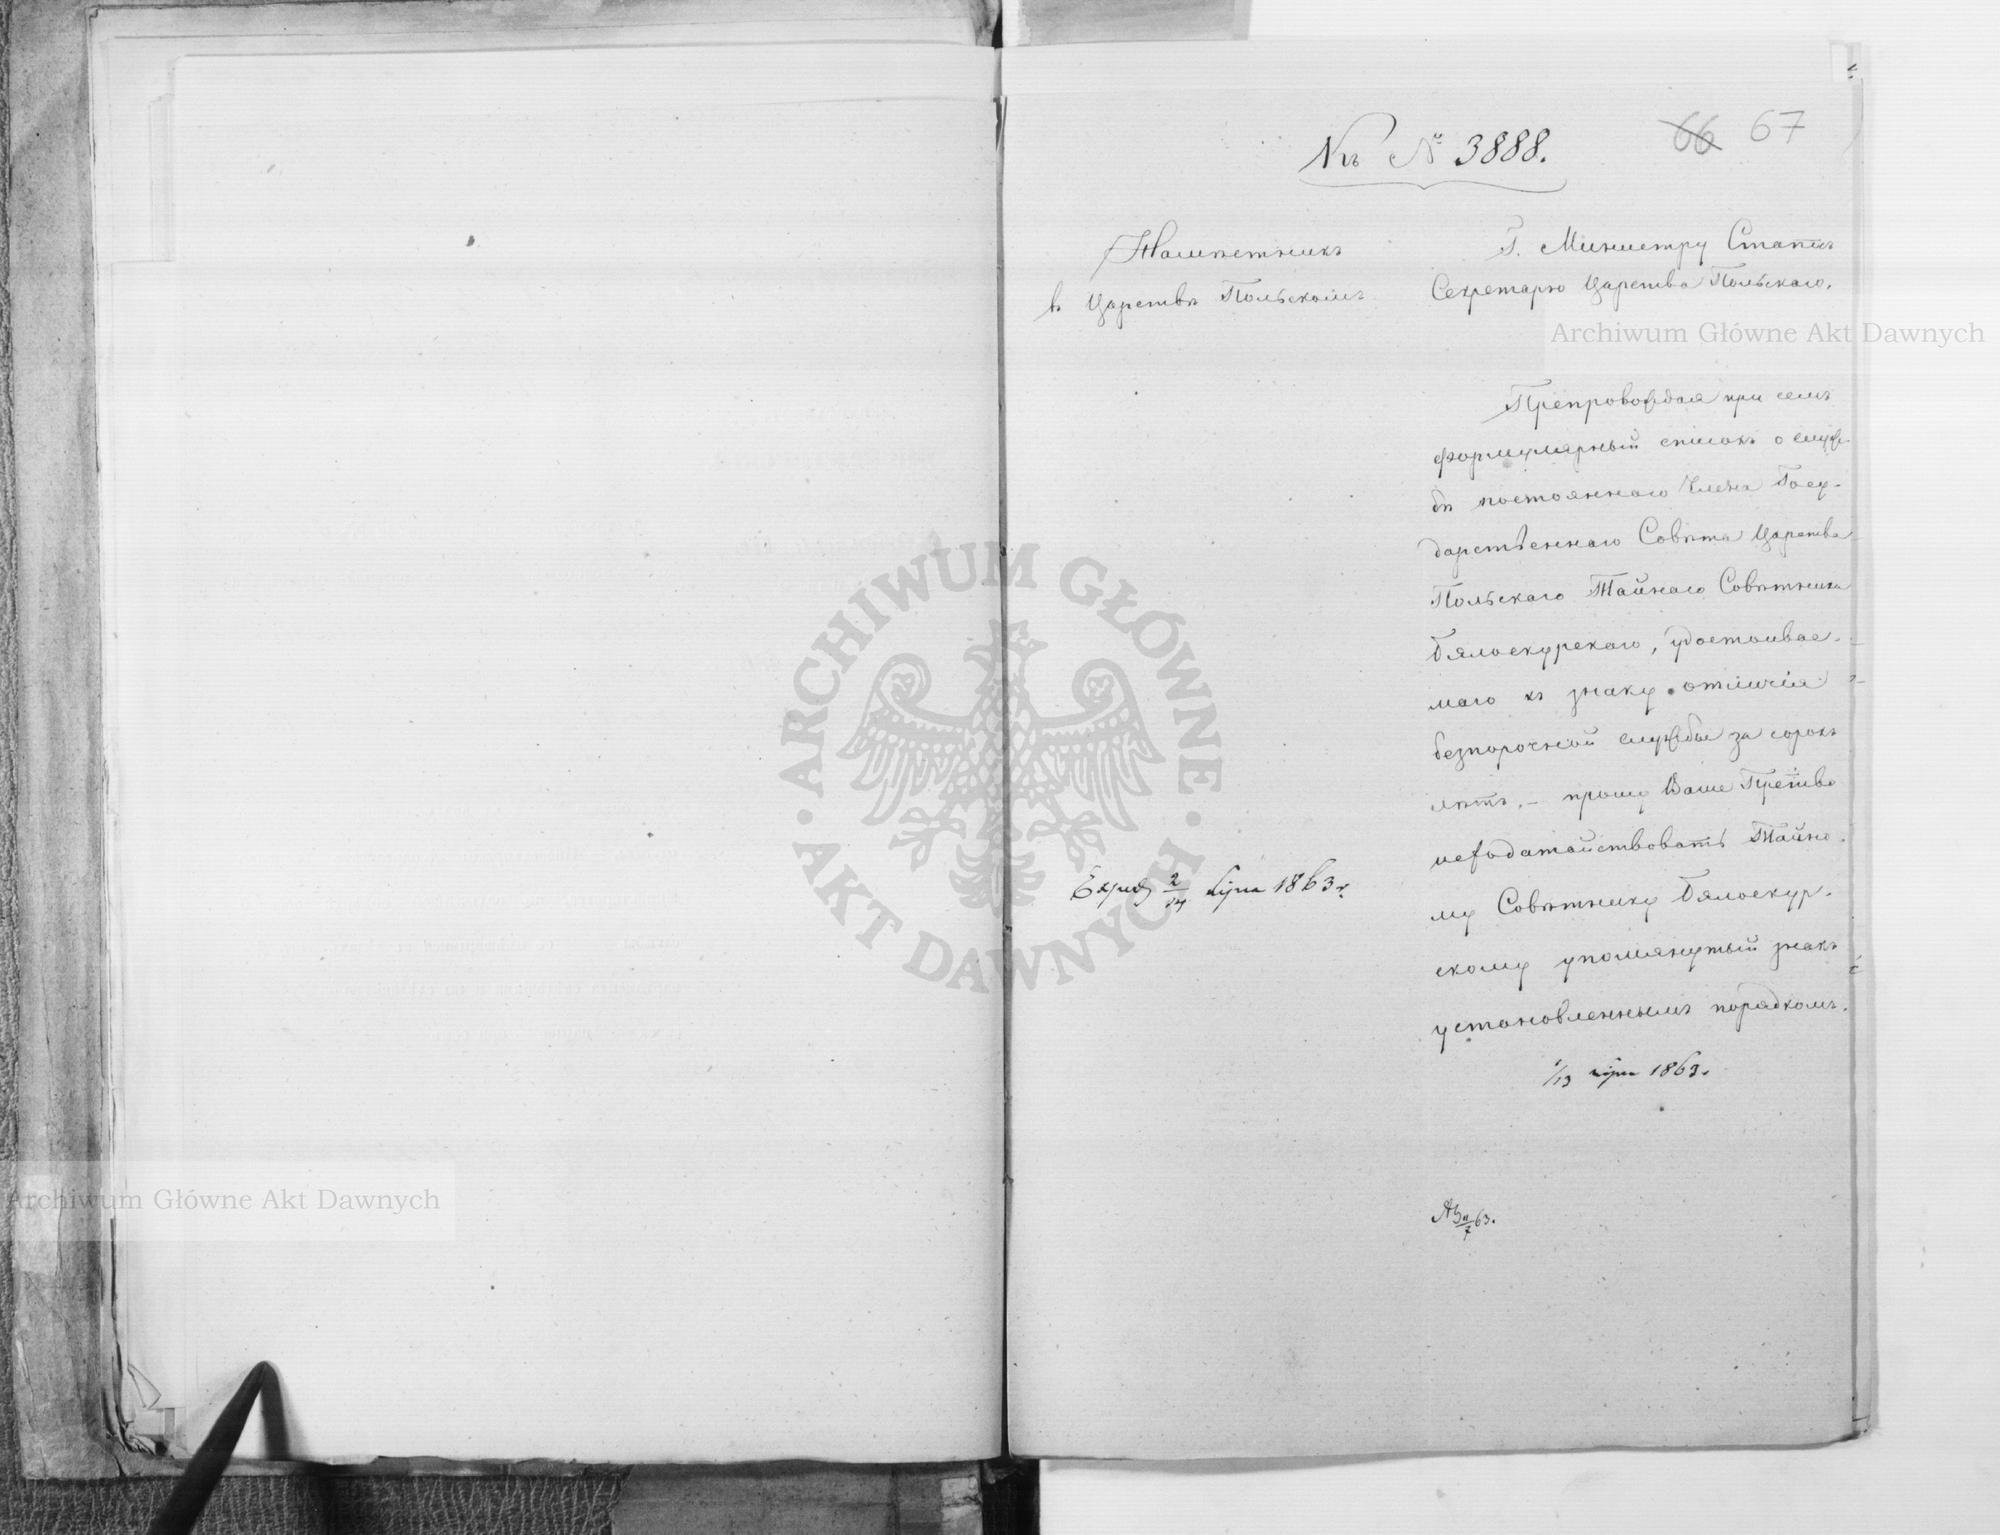 66 67
Къ № 3888.
Намѣстникъ
в Царствѣ Польскомъ
Г. Министру Статсъ
Секретарю Царства Польскаго.
Препровождая при семъ
формулярный списокъ о служ-
бѣ постояннаго Члена Госу-
дарственнаго Совѣта Царства
Польскаго Тайнаго Совѣтника
Бялоскурскаго, удостоивае-
маго къ знаку отличія
безпорочной службы за сорокъ
лѣтъ, – прошу Ваше Прев-во
исходатайствовать Тайно-
му Совѣтнику Бялоскур-
скому упомянутый знакъ
установленнымъ порядкомъ.
1/13 1863.
2/14 1863 г.
11/7 63.
Archiwum Główne Akt Dawnych
ARCHIWUM GŁÓWNE
AKT DAWNYCH
Archiwum Główne Akt Dawnych